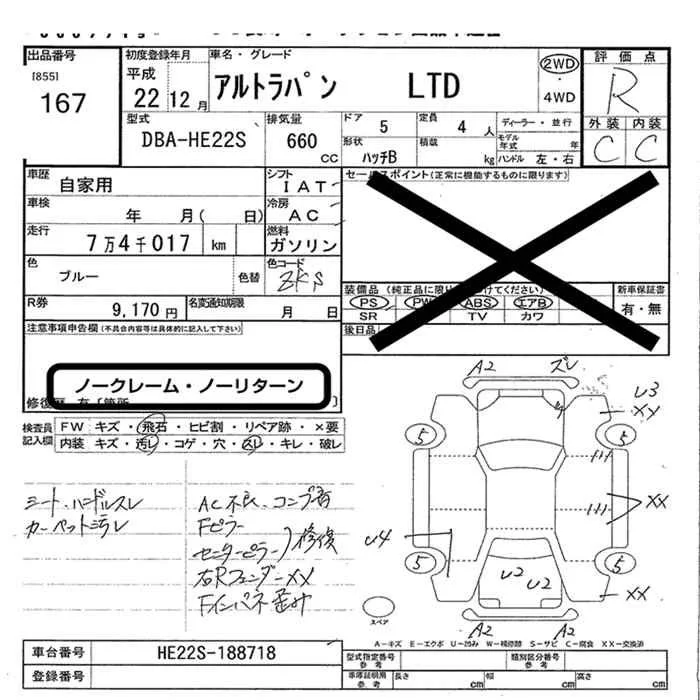 出品番号
[855]
167
初度登録年月
平成
22 12 月
車名・グレード
アルトラパン LTD
2WD
4WD
評価点
R
外装 内装
C C
型式
DBA-HE22S
排気量
660 CC
ドア 5
定員 4 人
形状
ハッチB
積載 kg
ディーラー・並行
モデル年式 年
ハンドル 左・右
車歴
自家用
シフト
IAT
セールスポイント(正常に機能するものに限ります)
車検
年 月( 日)
冷房
AC
走行
7万4千017 km
燃料
ガソリン
色
ブルー
色替
色コード
ZKS
装備品(純正品に限り てください)
新車保証書
PS PW ABS エアB
有・無
SR TV カワ
後日品
R券
9,170円
名変通知期限
月 日
注意事項申告欄(不具合内容等は具体的に記入して下さい)
ノークレーム・ノーリターン
修復歴 有 [箇所 ]
検査員記入欄
FW キズ・飛石・ヒビ割・リペア跡・×要
内装 キズ・汚レ・コゲ・穴・スレ・キレ・破レ
シート・ハンドルスレ
カーペット汚レ
AC不良・コンプ音
Fピラー
センターピラー)修復
右RフェンダーXX
Fインパネ歪み
A2 ズレ
U3
XY
5 5
XX
U4
U2 U2
5 5
XX
A2 A2
スペア
A-キズ E-エクボ U-凹み W-補修跡 S-サビ C-腐食 XX-交換済
車台番号
HE22S-188718
登録番号
型式指定番号
参考
類別区分番号
参考
車庫証明用
参考
長さ cm
幅 cm
高さ cm